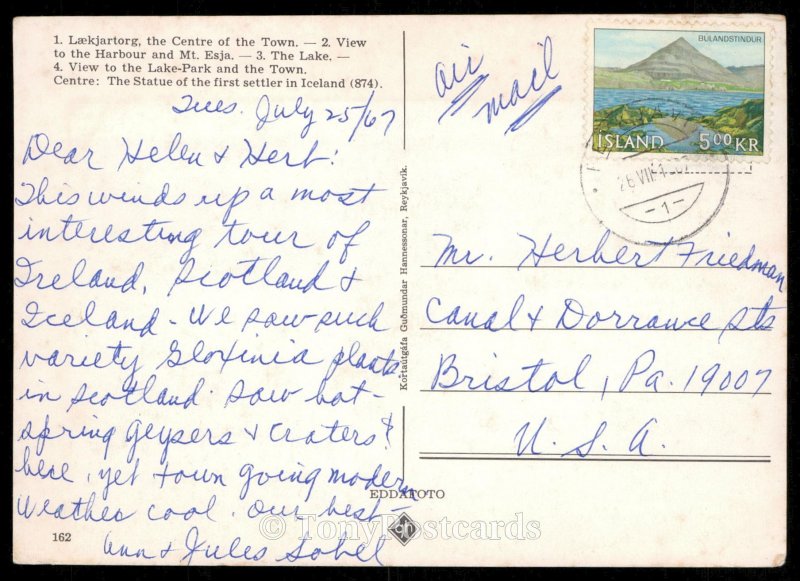 1. Lækjartorg, the Centre of the Town. — 2. View
to the Harbour and Mt. Esja. — 3. The Lake. —
4. View to the Lake-Park and the Town.
Centre: The Statue of the first settler in Iceland (874).
Tues. July 25/67
Dear Helen & Herb:
This winds up a most
interesting tour of
Ireland, Scotland &
Iceland - We saw such
variety Gloxinia plants
in Scotland. Saw hot-
spring geysers & craters
here, yet town going modern
Weather cool. Our best -
Ann & Jules Sobel
162
Kortaútgáfa Guðmundar Hannessonar, Reykjavík.
EDDAFOTO
air
mail
BULANDSTINDUR
ÍSLAND 5.00 KR
26 VII
-1-
Mr. Herbert Friedman
Canal & Dorrance Sts
Bristol, Pa. 19007
U.S.A.
© TonyPostcards